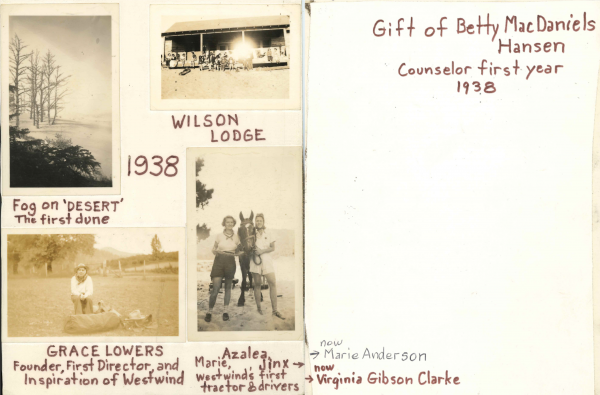 Fog on 'DESERT'
The first dune
WILSON
LODGE
1938
GRACE LOWERS
Founder, First Director, and
Inspiration of Westwind
Azalea,
Marie, Jinx →
Westwind's first
tractor & drivers
Gift of Betty MacDaniels
Hansen
Counselor first year
1938
now
→ Marie Anderson
now
→ Virginia Gibson Clarke